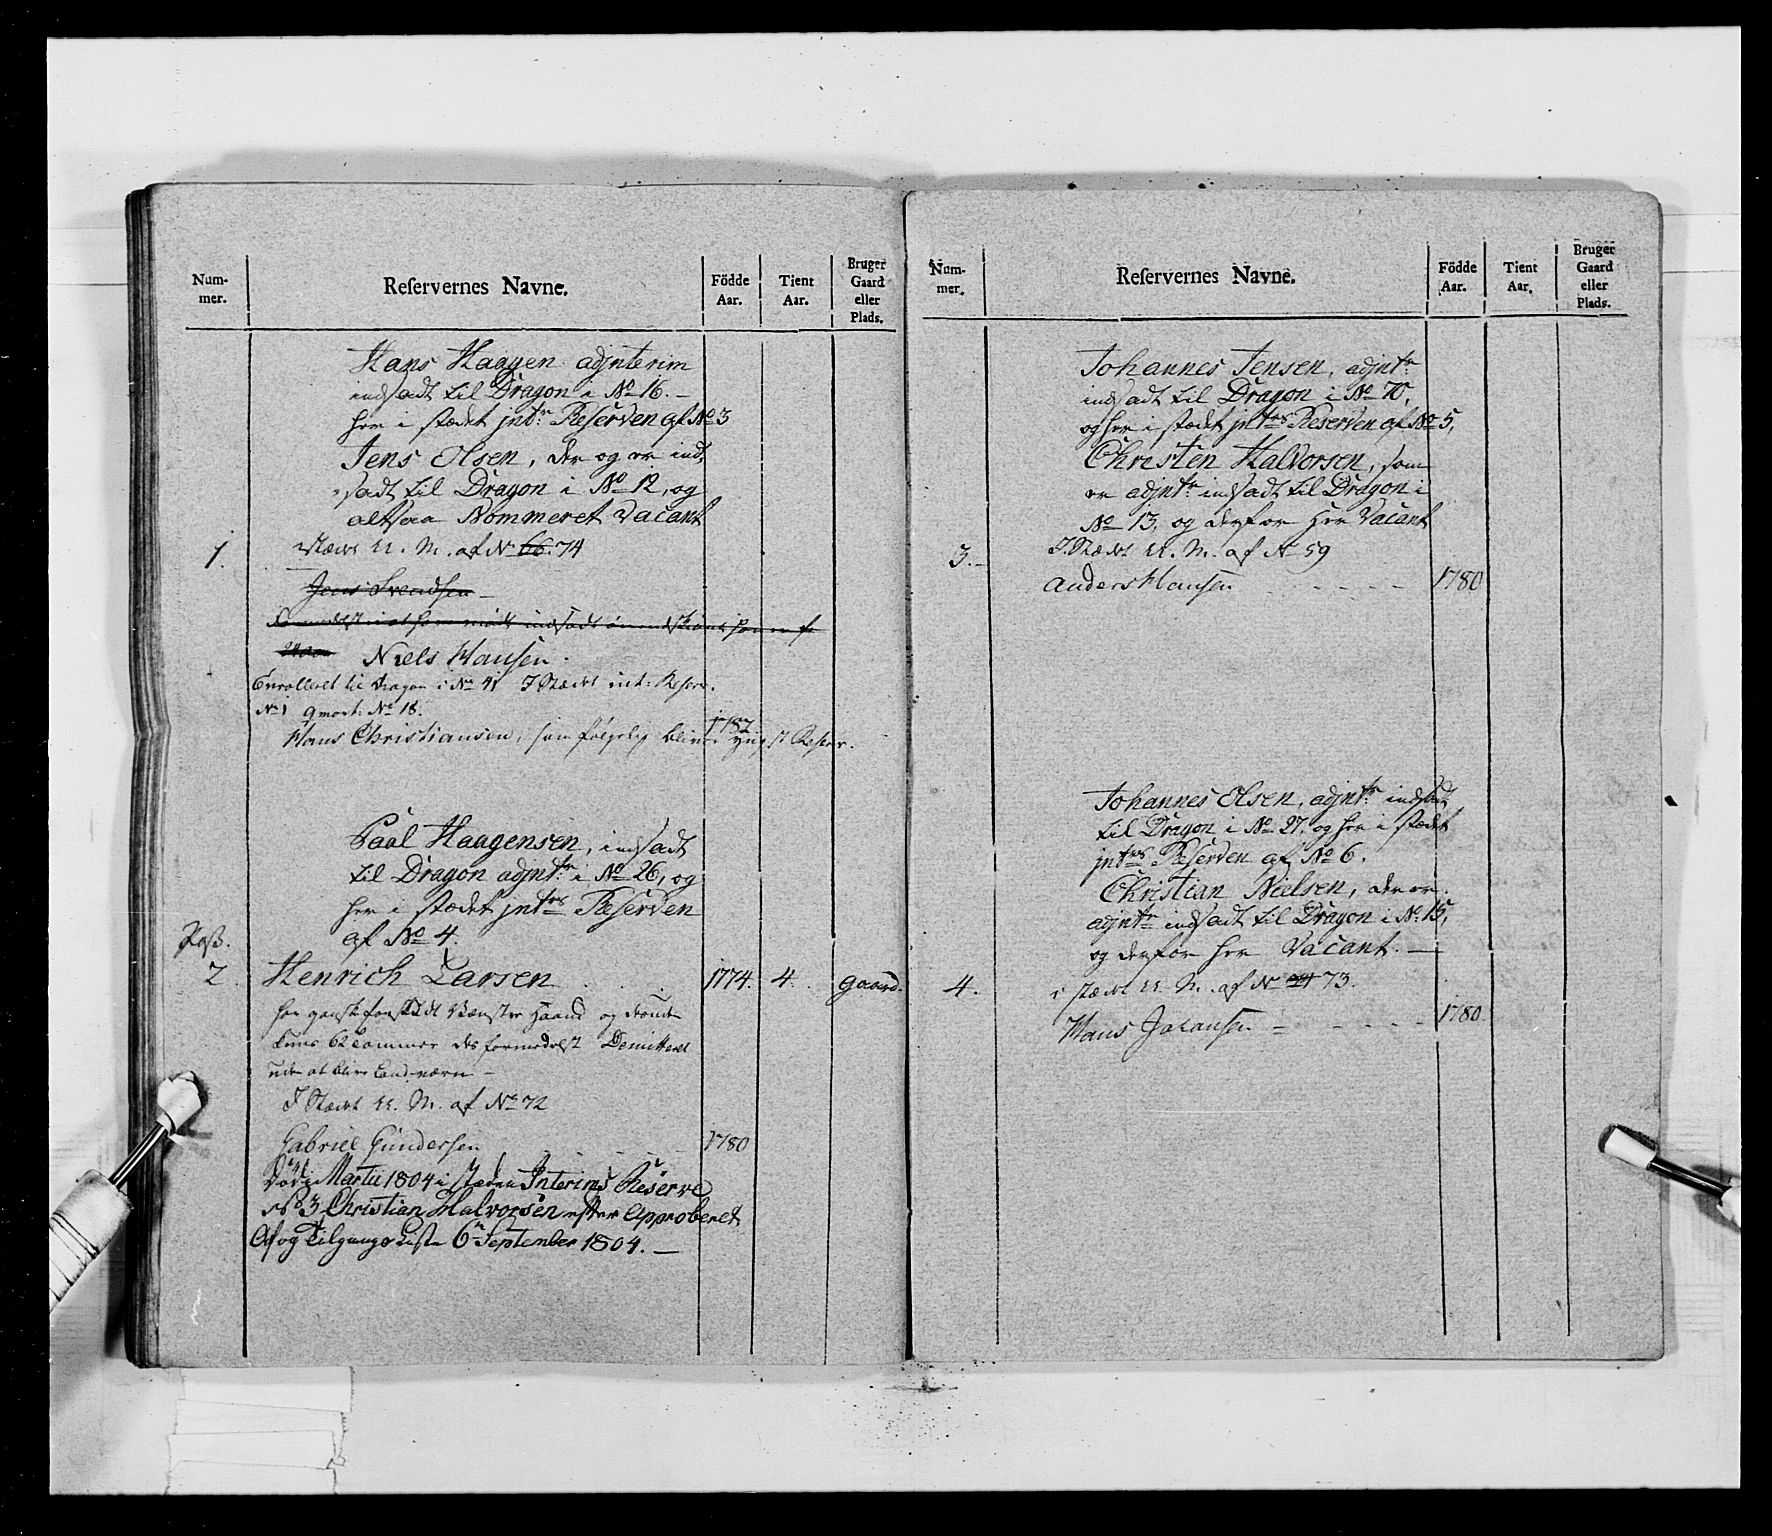 Num-
mer.
Reservernes Navne.
Födde
Aar.
Tient
Aar.
Bruger
Gaard
eller
Plads.
Hans Haagen adjnterim
indsadt til Dragon i No 16. -
her i stædet jntr. Reserven af No 3
Jens Olsen, der og er ind,
sadt til Dragon i No 12, og
altsaa Nommeret Vacant
1.
Stædet U. M. af No 66. 74
Jens Svendsen
Niels Hansen.
Enrolleret til Dragon i No 41 I Stædet int: Reserv.
No 1 qmort: No 18.
Hans Christiansen, som følgelig bliver yngst Reserv.
1782
Paal Haagensen, indsadt
til Dragon adjntr. i No 26, og
her i stædet jntrs Reserven
af No 4.
Pass.
2.
Henrich Larsen
1774.
4.
gaard.
har gandske Vænster Haand og
kuns 62 Tommer des formedelst Demitteret
uden at blive Land-værn -
I Stædet U. M. af No 72
Gabriel Gundersen
1780
Död i Martii 1804 i stæden Interims Reserve
No 3 Christian Halvorsen efter Approberet
Af og Tilgangs Liste 6n September 1804. -
Num-
mer.
Reservernes Navne.
Födde
Aar.
Tient
Aar.
Bruger
Gaard
eller
Plads.
Johannes Jensen, adjntr.
indsadt til Dragon i No 70,
og her i stædet jntrs Reserven af No 5,
Christen Halvorsen, som
er adjntr. indsadt til Dragon i
No 13. og derfor her Vacant
3.
I Stædet U. M. af No 59
Anders Hansen
1780
Johannes Olsen, adjntr. indsadt
til Dragon i No 27. og her i stædet
jntrs Reserven af No 6.
Christian Nielsen, der er
adjntr indsadt til Dragon i No. 15,
og derfor her Vacant. -
4.
i stædet U. M. af No 73.
Hans Johansen
1780.